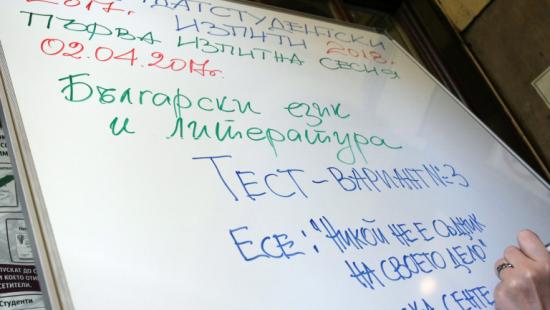 2017г.
ДАТСТУДЕНТСКИ
ИЗПИТИ 2018г.
ПЪРВА ИЗПИТНА СЕСИЯ
02.04.2017г.
Български език
и литература
ТЕСТ-ВАРИАНТ №3
ЕСЕ: "НИКОЙ НЕ Е СЪДНИК
НА СВОЕТО ДЕЛО"
КА СЕНТЕ
СЕТИТЕЛИ.
Студенти